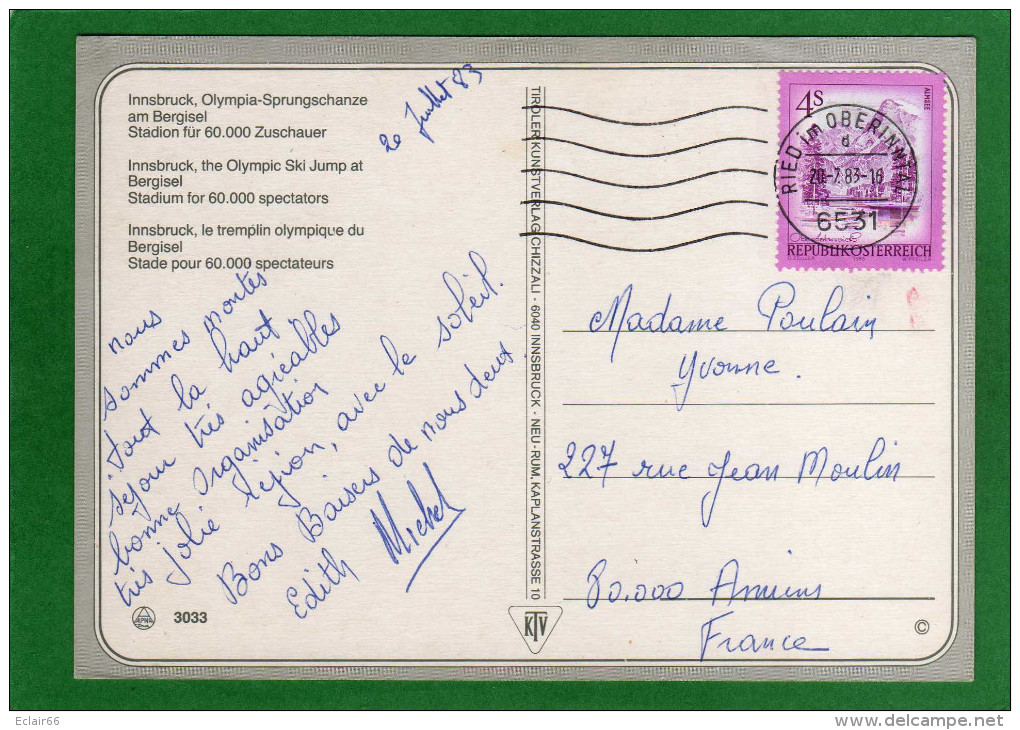 Innsbruck, Olympia-Sprungschanze
am Bergisel
Stadion für 60.000 Zuschauer
Innsbruck, the Olympic Ski Jump at
Bergisel
Stadium for 60.000 spectators
Innsbruck, le tremplin olympique du
Bergisel
Stade pour 60.000 spectateurs
20 Juillet 83
nous
sommes montés
tout la haut
séjour très agréables
bonne organisation
très jolie région, avec le soleil.
Bons Baisers de nous deux.
Edith Michel
3033
TIROLER KUNSTVERLAG CHIZZALI - 6040 INNSBRUCK - NEU-RUM, KAPLANSTRASSE 10
KTV
4S
ALMSEE
REPUBLIK ÖSTERREICH
RIED im OBERINNTAL
d
20-7.83-16
6531
Madame Poulain
Yvonne.
227 rue Jean Moulin
80.000 Amiens
France
©
Eclair66
www.delcampe.net